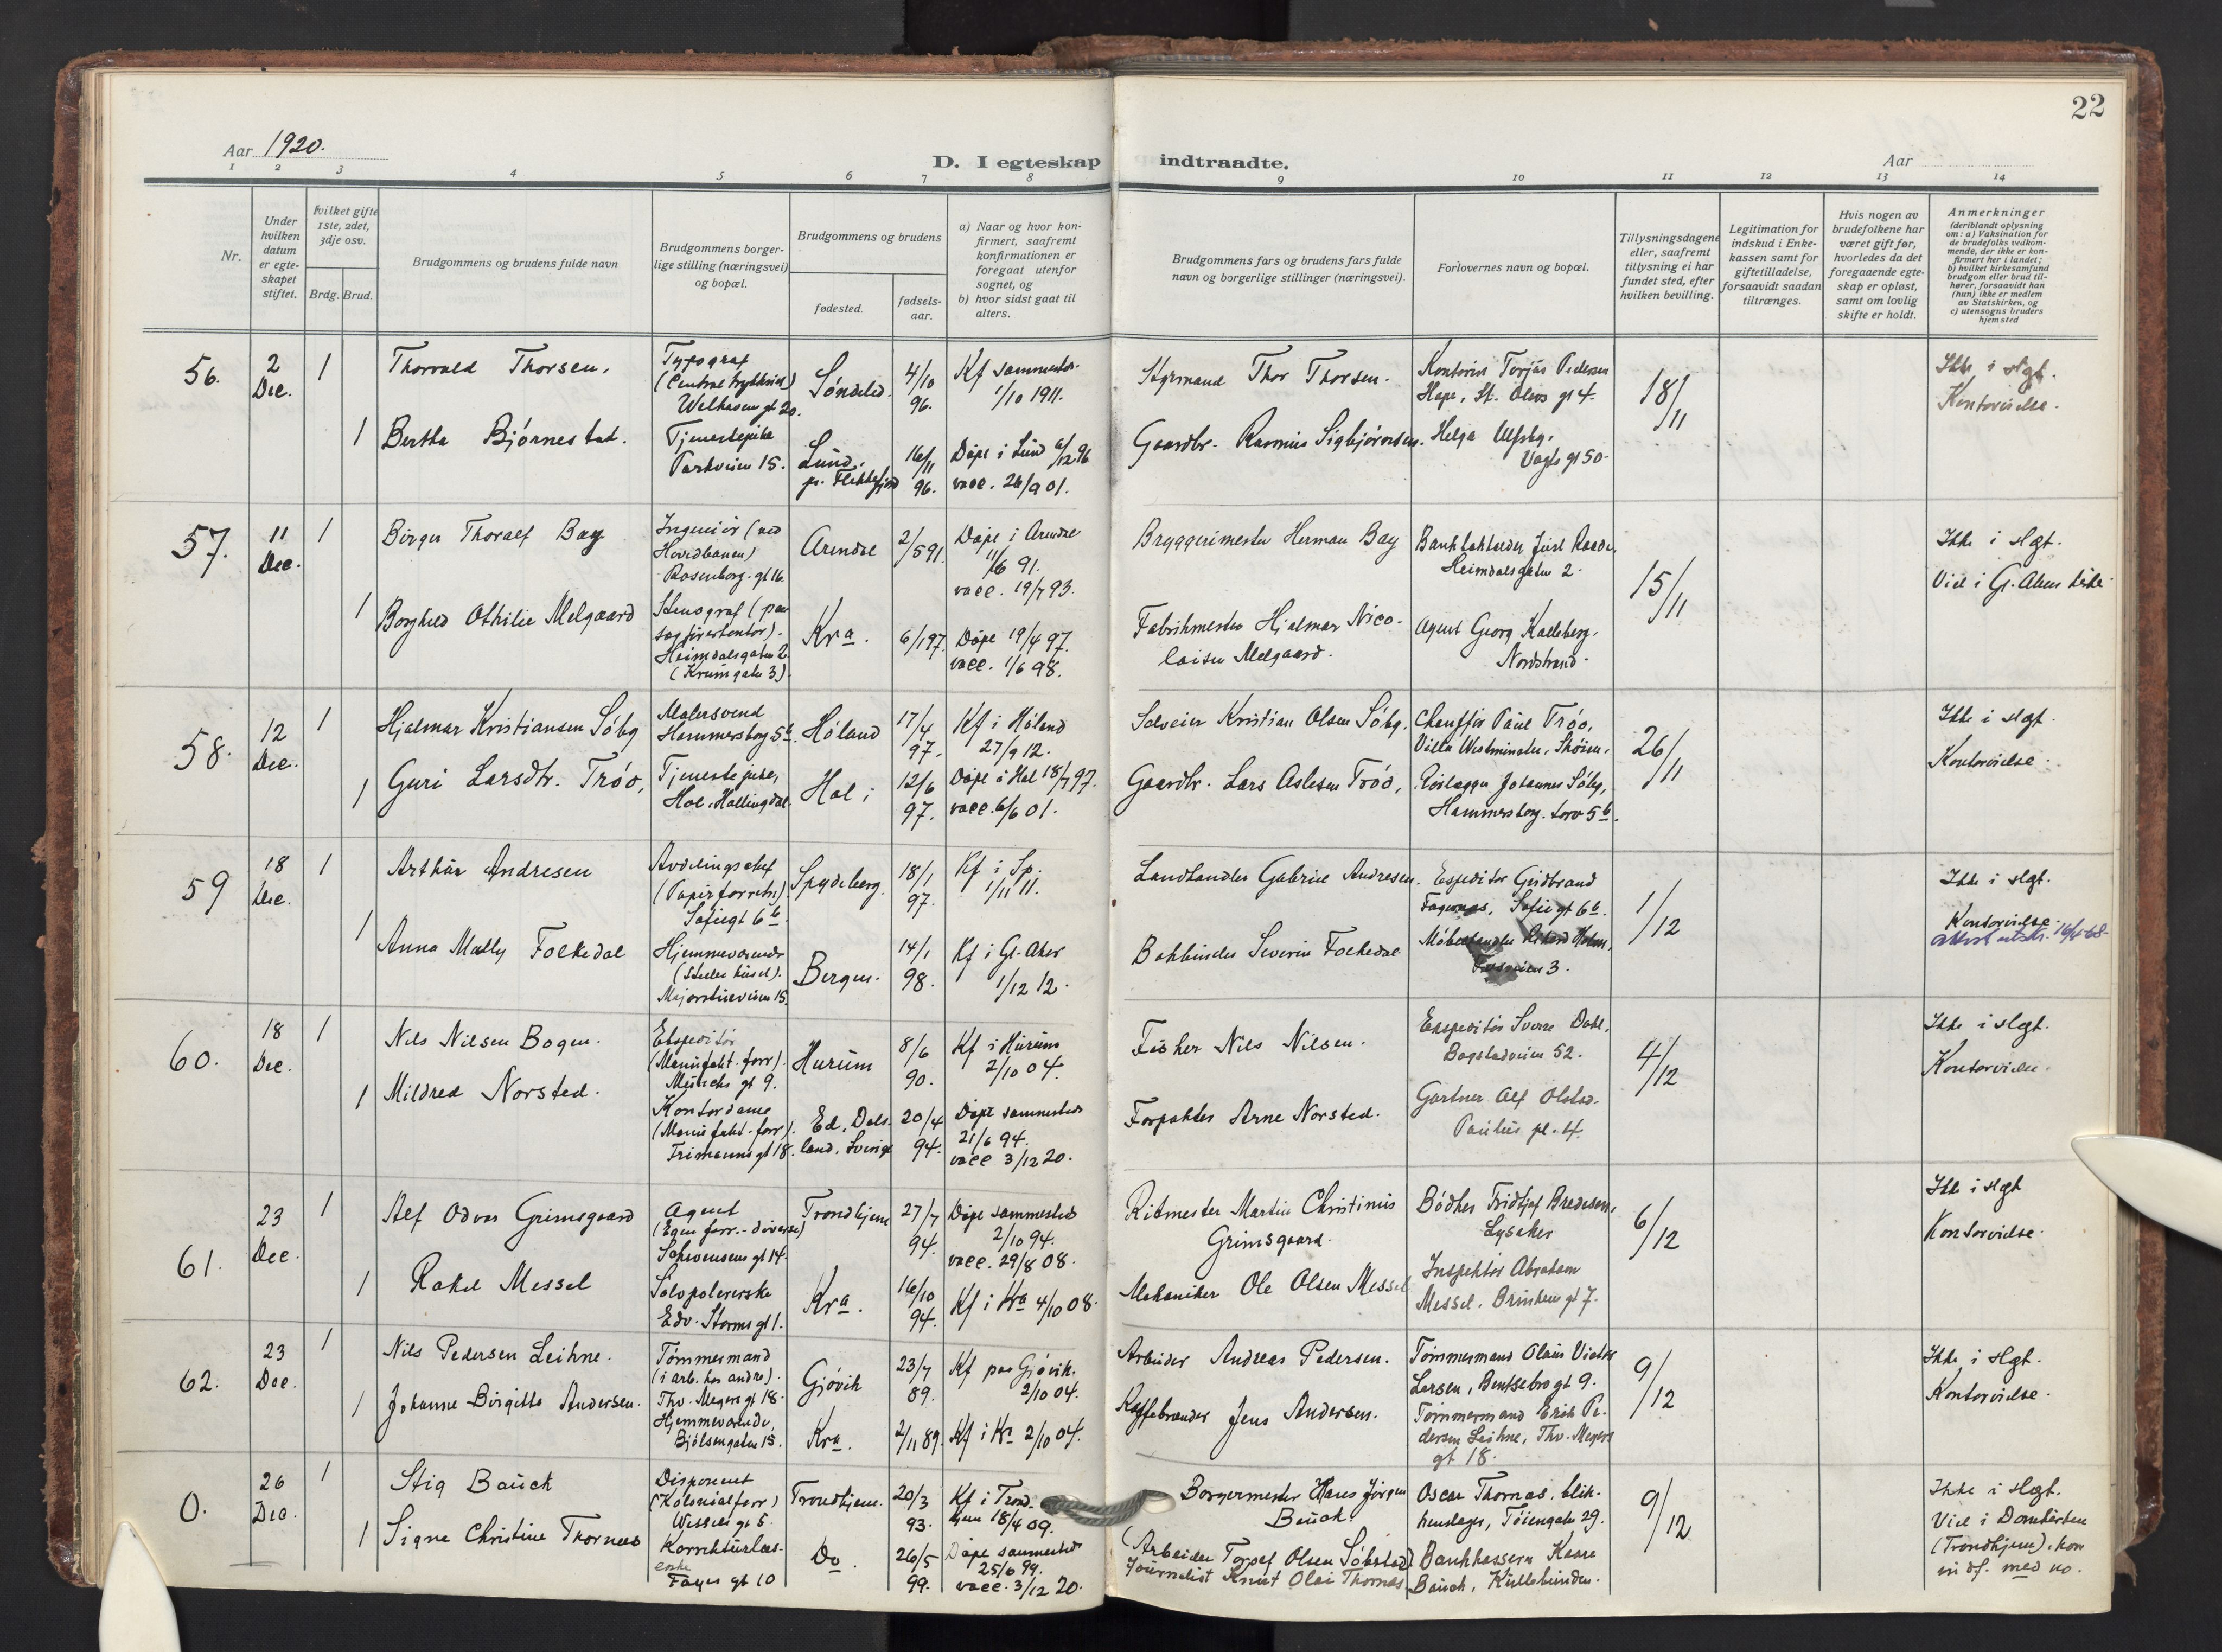 22
Aar 1920.
D. I egteskap indtraadte.
Aar
1 2 3 4 5 6 7 8 9 10 11 12 13 14
Nr.
Under hvilken datum er egteskapet stiftet.
hvilket gifte 1ste, 2det, 3dje osv.
Brdg. Brud.
Brudgommens og brudens fulde navn
Brudgommens borgerlige stilling (næringsvei) og bopæl.
Brudgommens og brudens
fødested.
fødselsaar.
a) Naar og hvor konfirmert, saafremt konfirmationen er foregaat utenfor sognet, og
b) hvor sidst gaat til alters.
Brudgommens fars og brudens fars fulde navn og borgerlige stillinger (næringsvei).
Forlovernes navn og bopæl.
Tillysningsdagene eller, saafremt tillysning ei har fundet sted, efter hvilken bevilling.
Legitimation for indskud i Enkekassen samt for giftetilladelse, forsaavidt saadan tiltrænges.
Hvis nogen av brudefolkene har været gift før, hvorledes da det foregaaende egteskap er opløst, samt om lovlig skifte er holdt.
Anmerkninger (deriblandt oplysning om: a) Vaksination for de brudefolks vedkommende, der ikke er konfirmert her i landet; b) hvilket kirkesamfund brudgom eller brud tilhører, forsaavidt han (hun) ikke er medlem av Statskirken, og c) utensogns bruders hjemsted
56. 2 Dec. 1
Thorvald Thorsen.
Typograf
Welhavens gt 20.
Søndeled.
4/10 96.
Kf sammesteds
1/10 1911.
Styrmand Thor Thorsen.
Kontorist Torjus Pedersen
Hope, St. Olavs gt 4.
18/11
Ikke i slegt.
Kontorvielse.
1 Bertha Bjørnestad.
Tjenestepike
Parkveien 15.
Lund.
pr. Flekkefjord
16/11 96.
Døpt i Lund 6/12 96
vacc. 26/9 01.
Gaardbr. Rasmus Sigbjørnsen.
Helga Ulfsby.
Vogts gt 50.
57. 11 Dec. 1
Birger Thoralf Bay
Ingeniør (ved
Hovedbanen)
Rosenborg. gt 16.
Arendal
2/5 91.
Døpt i Arendal
11/6 91.
vacc. 19/7 93.
Bryggerimester Herman Bay
Heimdalsgaten 2.
15/11
Ikke i slegt.
Viet i G. Akers kirke.
1 Borghild Othilie Melgaard
Stenograf (paa
sagførerkontor).
Heimdalsgaten 2
(Krumgaten 3).
Kra.
6/1 97.
Døpt 19/4 97.
vacc. 1/6 98.
Fabrikmester Hjalmar Nico-
laisen Melgaard.
Agent Georg Kalleberg,
Nordstrand.
58. 12 Dec. 1
Hjalmar Kristiansen Søby
Malersvend
Hammersborg 5b.
Høland
17/4 97.
Kf i Høland
27/9 12.
Selveier Kristian Olsen Søby.
Chauffør Paul Trøo,
Villa Westminster, Skøien.
26/11
Ikke i slegt.
Kontorvielse.
1 Guri Larsdtr. Trøo,
Tjenestepike,
Hol, Hallingdal.
Hol i
12/6 97.
Døpt i Hol 18/7 97.
vacc. 6/6 01.
Gaardbr. Lars Aslesen Trøo,
Rørlægger Johannes Søby,
Hammersborg. torv 5b.
59 18 Dec. 1
Arthur Andresen
Avdelingschef
(Papirforretn.)
Sofiegt 6b.
Spydeberg.
18/1 97.
Kf i Sp.
1/11 11.
Landhandler Gabriel Andresen.
Expeditør Gudbrand
Fagernes, Sofiegt 6b.
1/12
Ikke i slegt.
Kontorvielse.
1 Anna Mally Folkedal
Hjemmeværende
(steller huset).
Majorstueveien 15.
Bergen.
14/1 98.
Kf i Gl. Aker
1/12 12.
Bokbinder Severin Folkedal
Møbelhandler Rikard Holm,
3.
60. 18 Dec. 1
Nils Nilsen Bogen.
Ekspeditør
(Manufakt. forr).
Munchs gt 9.
Hurum
8/6 90.
Kf i Hurum
2/10 04.
Fisker Nils Nilsen.
Ekspeditør Sverre Dahl,
Bogstadveien 52.
4/12
Ikke i slegt.
Kontorvielse.
1 Mildred Norsted.
Kontordame
(Manufakt. forr).
Frimanns gt 18.
Ed, Dals-
land, Sverige
20/4 94.
Døpt sammesteds
21/6 94.
vacc 3/12 20.
Forpakter Arne Norsted.
Gartner Alf Olstad.
Paulus pl. 4.
61. 23 Dec. 1
Alf Odvar Grimsgaard
Agent
(Egen forr. - diverse)
Schwensens gt 14.
Trondhjem
27/7 94.
Døpt sammesteds
2/10 94.
vacc. 29/8 08.
Ritmester Martin Christinius
Grimsgaard.
Bødker Fridtjof Bredesen,
Lysaker
6/12
Ikke i slegt
Kontorvielse.
1 Rakel Messel
Sølvpolererske
Edv. Storms gt 1.
Kra.
16/10 94.
Kf i Kra 4/10 08.
Mekaniker Ole Olsen Messel
Inspektør Abraham
Messel. Brinken gt 7.
62. 23 Dec. 1
Nils Pedersen Leihne.
Tømmermand
(i arb. hos andre).
Thv. Meyers gt 18.
Gjøvik
23/7 89.
Kf paa Gjøvik.
2/10 04.
Arbeider Andreas Pedersen.
Tømmermand Olaus Victor
Larsen, Bentsebrogt 9.
9/12
Ikke i slegt.
Kontorvielse.
1 Johanne Birgitte Andersen.
Hjemmeværende,
Bjølsengaten 13.
Kra.
2/11 89.
Kf i Kra 2/10 04.
Kaffebrænder Jens Andersen.
Tømmermand Erik Pe-
dersen Leihne, Thv. Meyers
gt 18.
0. 26 Dec. 1
Stig Bauck
Disponent
(Kolonialforr)
Wessels gt 5.
Trondhjem.
20/3 93.
Kf i Trond-
hjem 18/4 09.
Borgermester Hans Jørgen
Bauck.
Oscar Thornæs, blik-
kenslager, Tøiengaten 29.
9/12
Ikke i slegt.
Viet i Domkirken
(Trondhjem),
1 Signe Christine Thornæs
Korrekturlæs-
erske
Fayes gt 10
Do.
26/5 99.
Døpt sammesteds
25/6 99.
vacc. 3/12 20.
Arbeider Torolf Olsen Søbstad
Journalist Knut Olai Thornæs.
Bankkasserer Kaare
Bauck,